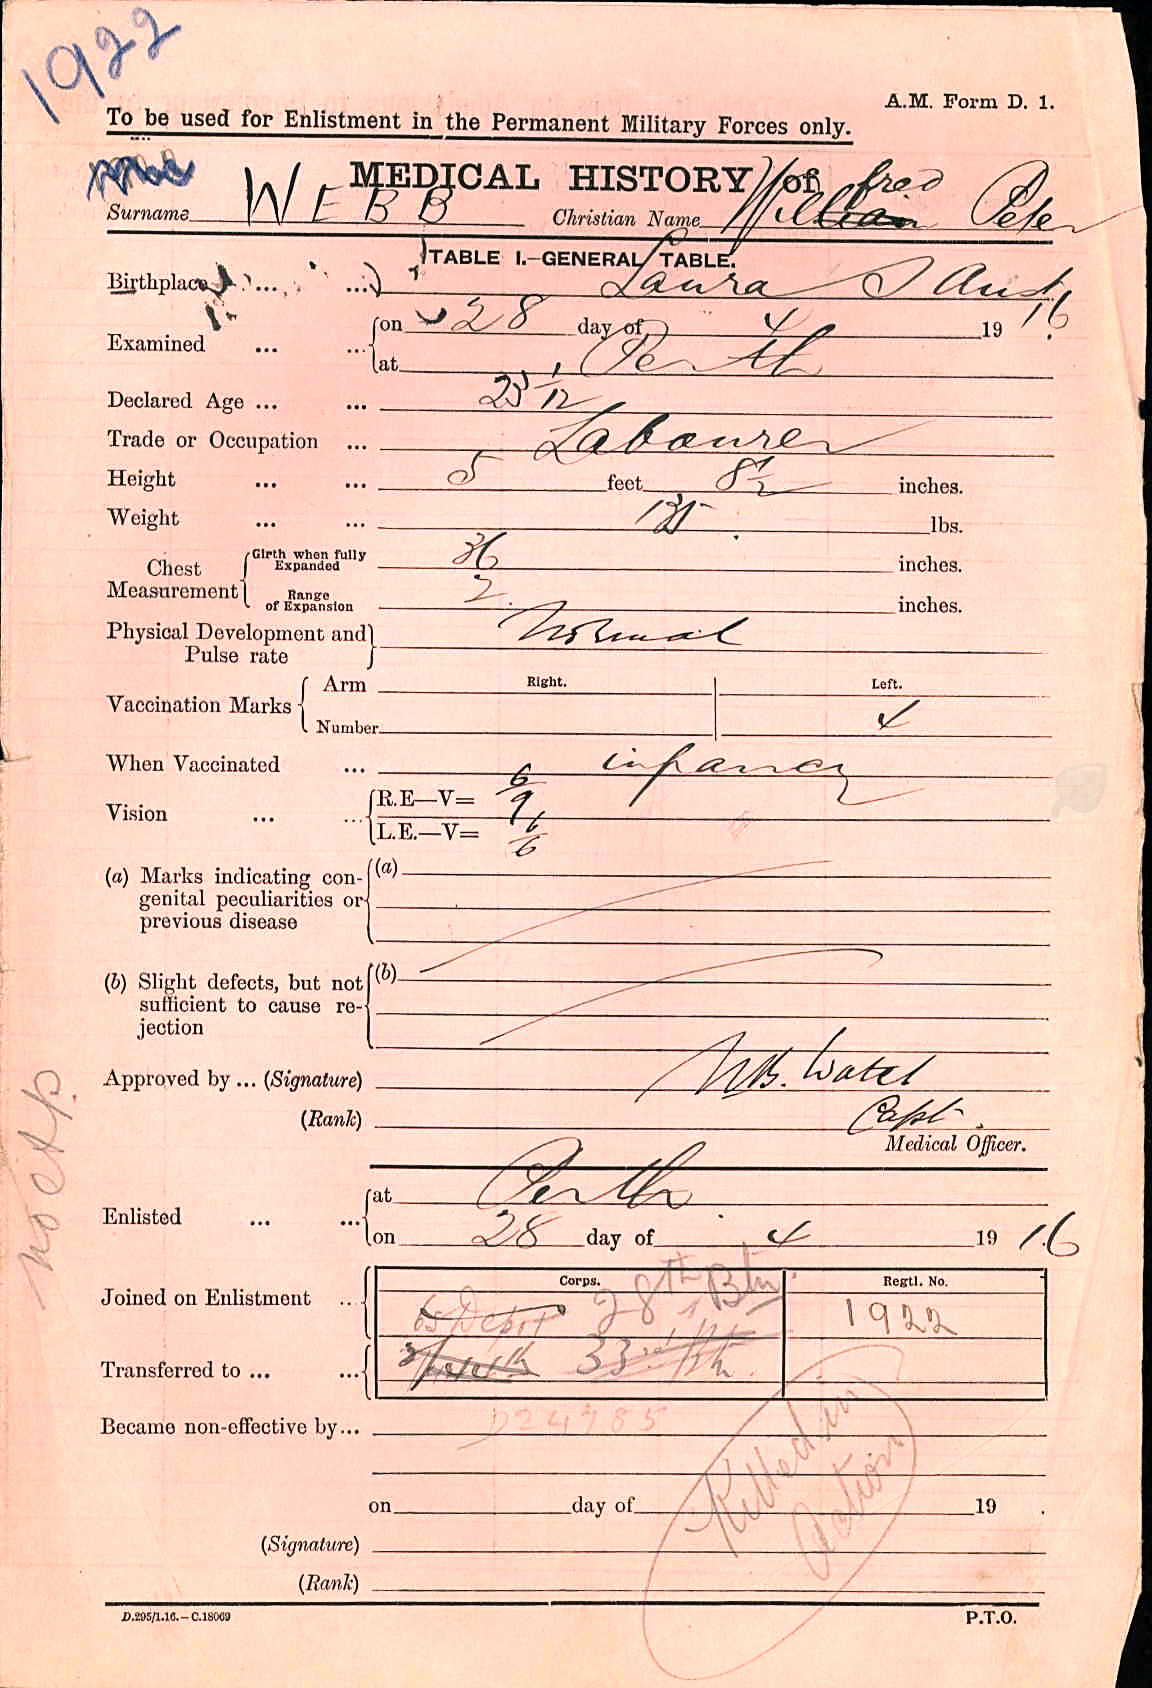 1922
A.M. Form D. 1.
To be used for Enlistment in the Permanent Military Forces only.
MEDICAL HISTORY of
Surname WEBB Christian Name William fred Peter
TABLE I.—GENERAL TABLE.
Birthplace ... ... Laura S Aust
Examined ... ... on 28 day of 4 1916.
at Perth
Declared Age ... ... 25 1/12
Trade or Occupation ... Labourer
Height ... ... 5 feet 8½ inches.
Weight ... ... 135 lbs.
Chest Measurement Girth when fully Expanded 36 inches.
Range of Expansion 2 inches.
Physical Development and Pulse rate Normal
Vaccination Marks Arm Right. Left.
Number 4
When Vaccinated ... infancy
Vision ... ... R.E—V= 6/9
L.E.—V= 6/6
(a) Marks indicating con- (a)
genital peculiarities or
previous disease
(b) Slight defects, but not (b)
sufficient to cause re-
jection
Approved by ... (Signature)
(Rank) Capt.
Medical Officer.
no exp.
Enlisted ... ... at Perth
on 28 day of 4 1916
Corps. Regtl. No.
Joined on Enlistment ... 65 Depot 28th Btn. 1922
Transferred to ... ... 33rd
Became non-effective by... D24785
Killed in
action
on day of 19 .
(Signature)
(Rank)
D.295/1.16.—C.18069
P.T.O.